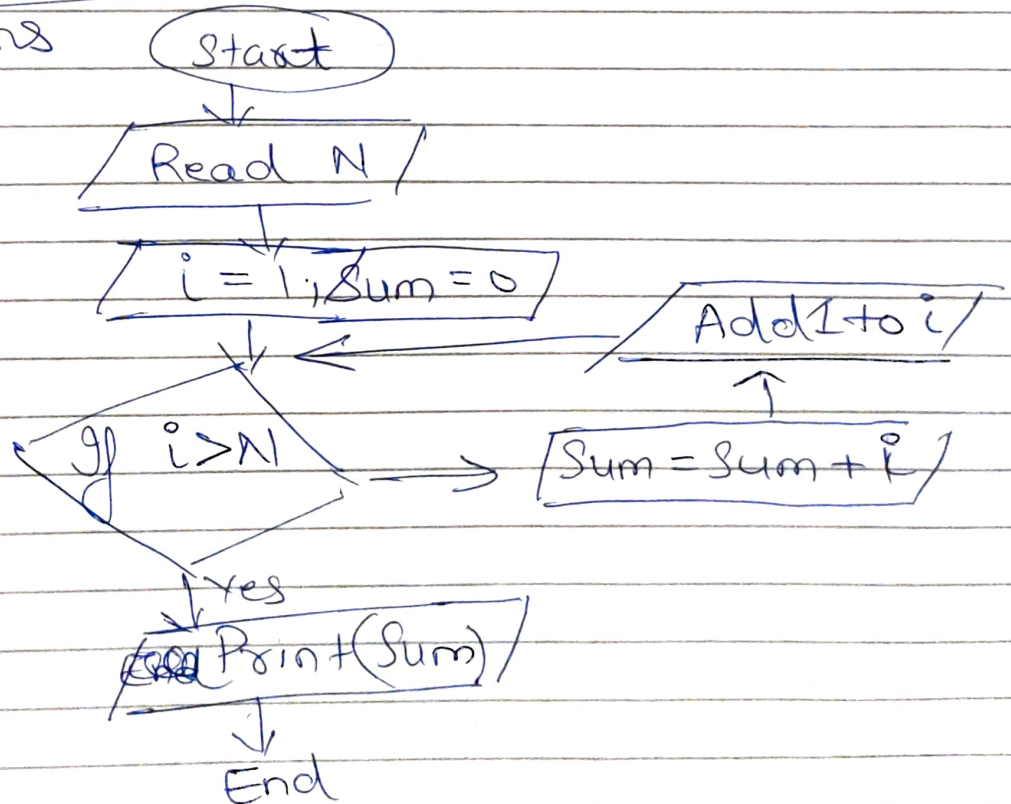 ns
Start
Read N
i = 1; Sum = 0
Add 1 to i
If i > N
Sum = Sum + i
Yes
Print(Sum)
End